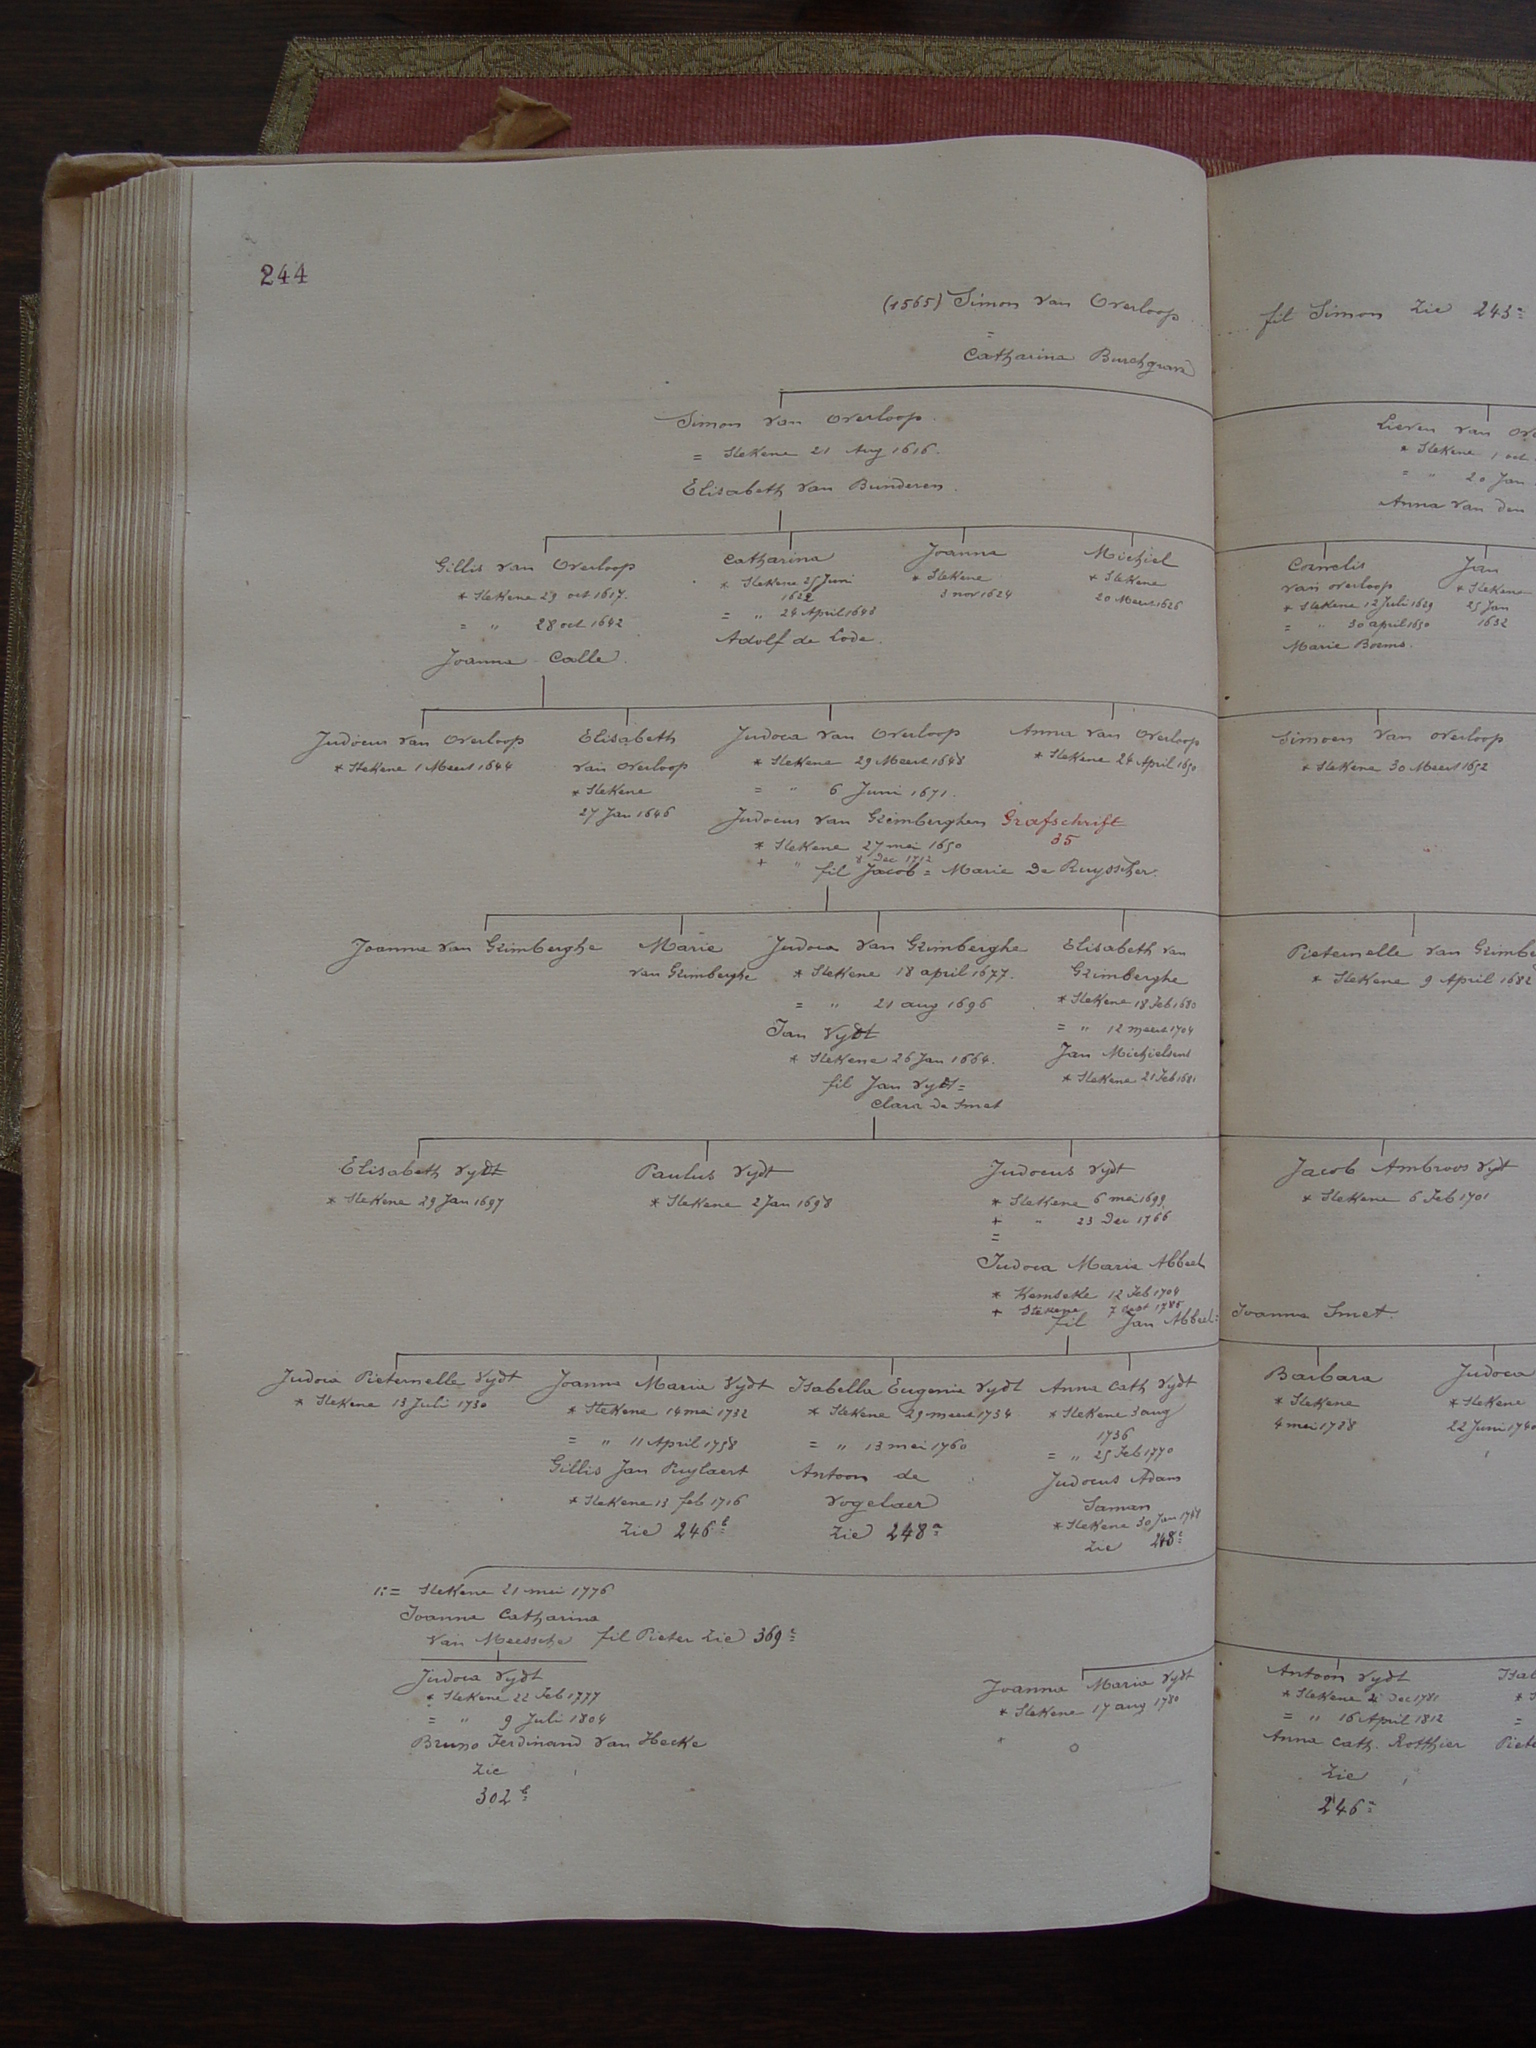 244
(1565) Simon van Overloop fil Simon Zie 243
=
Catharina Burchgrave
Simon van Overloop.
= Stekene 21 Aug 1616.
Elisabeth van Bunderen.
Lieven van
* Stekene 1 oct
= " 20 Jan
Anna van den
Gillis van Overloop
* Stekene 29 oct 1617.
= " 28 oct 1642
Joanna Calle.
Catharina
* Stekene 25 Juni
1622
= " 24 April 1648
Adolf de Lode.
Joanna
* Stekene
3 nov 1624
Michiel
* Stekene
20 Meert 1626
Cornelis
van overloop
* Stekene 12 Juli 1629
= " 30 april 1650
Marie Boems.
Jan
* Stekene
25 Jan
1632
Judocus van Overloop
* Stekene 1 Meert 1644
Elisabeth
van Overloop
* Stekene
27 Jan 1646
Judoca van Overloop
* Stekene 29 Meert 1648
= " 6 Juni 1671.
Judocus van Grimberghen Grafschrift
35
* Stekene 27 mei 1650
+ " 8 Dec 1712
fil Jacob = Marie De Ruysscher.
Anna van Overloop
* Stekene 24 April 1650
Simoen van overloop
* Stekene 30 Meert 1652
Joanna van Grimberghe
Marie
van Grimberghe
Judoca van Grimberghe
* Stekene 18 april 1677.
= " 21 aug 1696
Jan Vydt
* Stekene 26 Jan 1664.
fil Jan Vydt =
Clara De Smet
Elisabeth van
Grimberghe
* Stekene 18 Feb 1680
= " 12 meert 1704
Jan Michielsens
* Stekene 21 Feb 1681
Pieternelle van
* Stekene 9 April 1682
Elisabeth Vydt
* Stekene 29 Jan 1697
Paulus Vydt
* Stekene 2 Jan 1698
Judocus Vydt
* Stekene 6 mei 1699
+ " 23 Dec 1766
=
Judoca Maria Abbeel
* Kemseke 12 Feb 1704
+ Stekene 7 1786
fil Jan Abbeel = Joanna Smet.
Jacob Ambroos Vydt
* Stekene 6 Feb 1701
Judoca Pieternelle Vydt
* Stekene 13 Juli 1730
Joanna Maria Vydt
* Stekene 14 mei 1732
= " 11 April 1758
Gillis Jan Puylaert
* Stekene 13 feb 1716
Zie 246 b
Isabella Eugenia Vydt
* Stekene 29 meert 1734
= " 13 mei 1760
Antoon de
Vogelaer
Zie 248 a
Anna Cath Vydt
* Stekene 3 aug
1736
= " 25 Feb 1770
Judocus Adam
Saman
* Stekene 30 Jan 1748
Zie 248
Barbara
* Stekene
4 mei 1738
Judoca
* Stekene
22 Juni 1740
1: = Stekene 21 mei 1776
Joanna Catharina
Van Meessche fil Pieter Zie 369
Judoca Vydt
* Stekene 22 Feb 1777
= " 9 Juli 1804
Bruno Ferdinand Van Hecke
Zie
302 b
Joanna Maria Vydt
* Stekene 17 aug 1780
Antoon Vydt
* Stekene 2 Dec 1781
= " 16 April 1812
Anna Cath. Rotthier
Zie
246